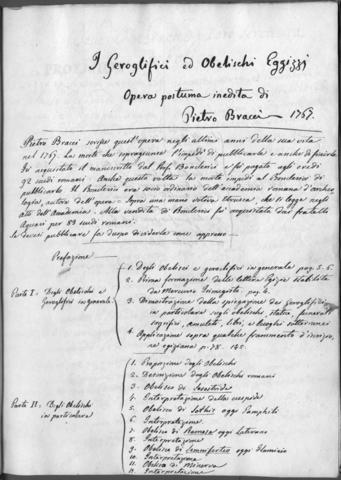 I Geroglifici ed Obelischi Egizzj
Opera postuma inedita di
Pietro Bracci — 1767.
Pietro Bracci scrisse quest'opera negli ultimi anni della sua vita
nel 1767. La morte che sopraggiunse l'impedì di pubblicarla e anche di finirla.
Fu acquistato il manoscritto dal e fu pagato agli eredi
92 scudi romani. Anche questa volta la morte impedì al
pubblicarlo. Il era socio ordinario dell'accademia romana d'archeo
logia, autore dell'opera — Sopra una mano votiva Etrusca, che si legge negli
Atti dell'Accademia. Alla vendita di fu acquistato dai fratelli
per 83 scudi romani.
Se dovesi pubblicare fa duopo dividerla come appresso —
Prefazione —
Parte I: Degli Obelischi e
Geroglifici in generale
1. Degli Obelisci e geroglifici in generale pag. 5.
2. Prima formazione delle lettere Egizie stabilita
da Mercurio Trimegisto pag. 6.
3. Dimostrazione della spiegazione dei Geroglifici,
in particolare sugli obelischi, statue, funerali
amuleti, libri, e luoghi sotterranei
4. Applicazione sopra qualche frammento d'iscrizio
ne egiziana p. 142.
Parte II: Degli Obelischi
in particolare
1. Proporzione degli Obelischi
2. Descrizione degli Obelischi romani
3. Obelisco di Sesostride
4. Interpretazione della cuspide
5. Obelisco di Sothis oggi Pamphili
6. Interpretazione
7. Obelisco di Ramesse oggi Laterano
8. Interpretazione
9. Obelisco di Semniserteo oggi Flaminio
10. Interpretazione
11. Obelisco di Minerva
12. Interpretazione